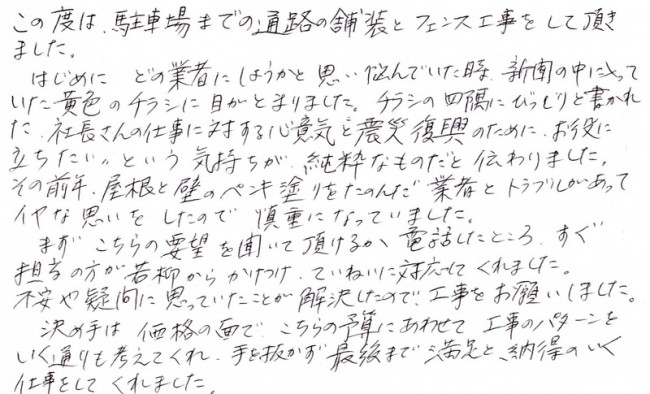 この度は、駐車場までの通路の舗装とフェンス工事をして頂き
ました。
はじめに どの業者にしようかと思い悩んでいた時、新聞の中に入って
いた黄色のチラシに目がとまりました。チラシの四隅にびっしりと書かれ
た、社長さんの仕事に対する心意気と震災復興のために、お役に
立ちたい〟という気持ちが、純粋なものだと伝わりました。
その前年、屋根と壁のペンキ塗りをたのんだ業者とトラブルがあって
イヤな思いをしたので慎重になっていました。
まず こちらの要望を聞いて頂けるか、電話したところ、すぐ
担当の方が若柳からかけつけ、ていねいに対応して くれました。
不安や疑問に思っていたことが解決したので、工事をお願いしました。
決め手は 価格の面で、こちらの予算にあわせて 工事のパターンを
いく通りも考えてくれ、手を抜かず最後まで満足と、納得のいく
仕事をして くれました。